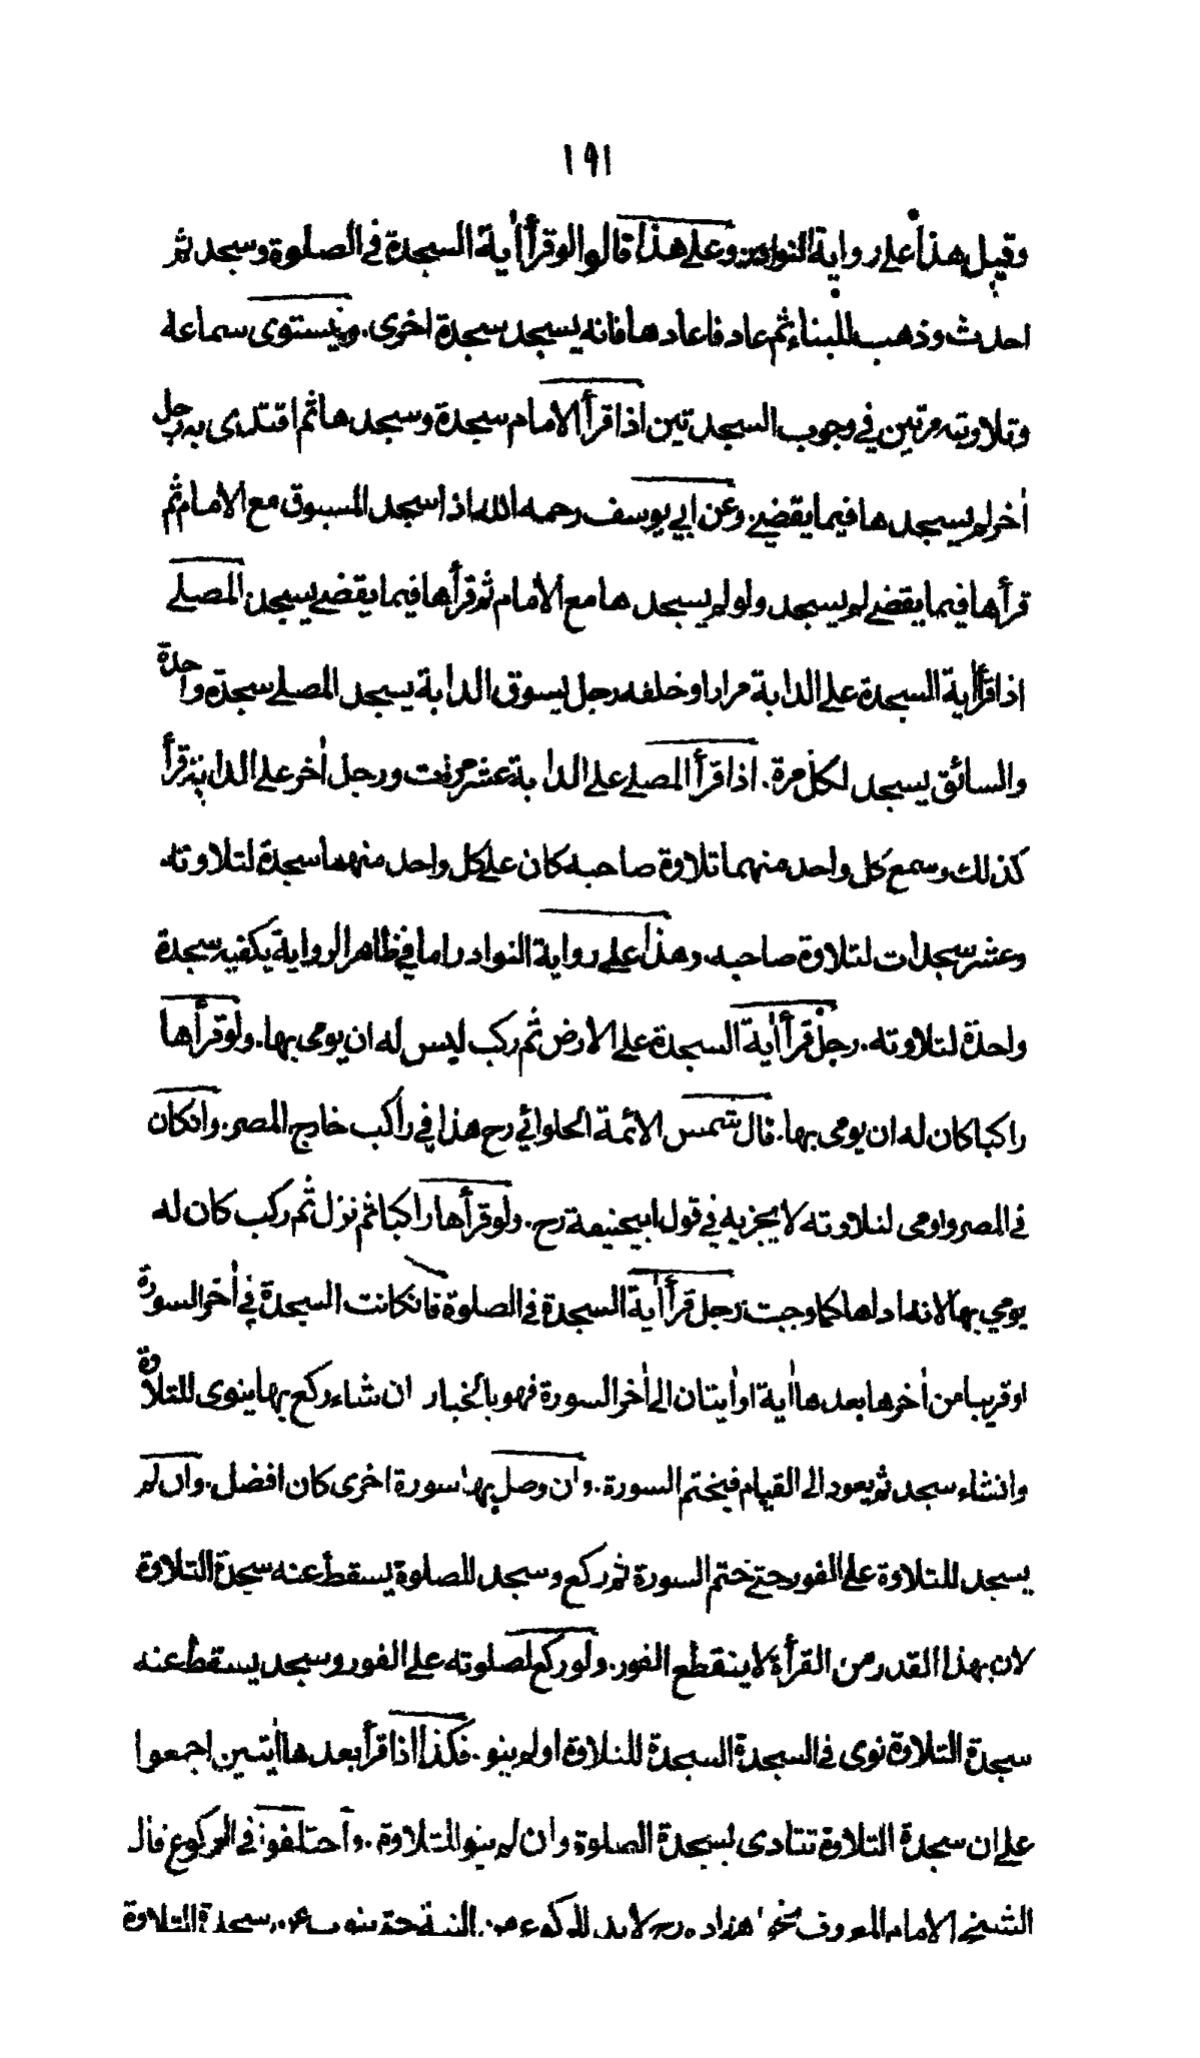 ١٩١
وقيل هذا على رواية النوادر وعلى هذا قالوا لو قرأ اٰية السجدة فى الصلوة وسجد ثم
احدث وذهب للبناء ثم عاد فاعادها فانه يسجد سجدة اخرى. ويستوى سماعه
وتلاوته مرتين فى وجوب السجدتين اذا قرأ الامام سجدة وسجدها ثم اقتدى به رجل
اٰخر لم يسجدها فيما يقضى. وعن ابى يوسف رحمه الله اذا سجد المسبوق مع الامام ثم
قرأها فيما يقضى لم يسجد ولو لم يسجدها مع الامام ثم قرأها فيما يقضى يسجد. المصلى
اذا قرأ اٰية السجدة على الدابة مرارا وخلفه رجل يسوق الدابة يسجد المصلى سجدة واحدة
والسائق يسجد لكل مرة. اذا قرأ المصلى على الدابة عشر مرات ورجل اٰخر على الدابة قرأ
كذلك وسمع كل واحد منهما تلاوة صاحبه كان على كل واحد منهما سجدة لتلاوته
وعشر سجدات لتلاوة صاحبه. وهذا على رواية النوادر اما فى ظاهر الرواية يكفيه سجدة
واحدة لتلاوته. رجل قرأ اٰية السجدة على الارض ثم ركب ليس له ان يومى بها. ولو قرأها
راكبا كان له ان يومى بها. قال شمس الائمة الحلوائي رح هذا فى راكب خارج المصر. وانكان
فى المصر واومى لتلاوته لا يجزيه فى قول ابيحنيفة رح. ولو قرأها راكبا ثم نزل ثم ركب كان له
يومي بها لانه اداها كما وجبت رجل قرأ اٰية السجدة فى الصلوة فانكانت السجدة فى اٰخر السورة
او قريبا من اٰخرها بعدها اٰية او اٰيتان الى اٰخر السورة فهو بالخيار ان شاء ركع بها ينوى للتلاوة
وانشاء سجد ثم يعود الى القيام فيختم السورة. وان وصل بها سورة اخرى كان افضل. وان لم
يسجد للتلاوة على الفور حتى ختم السورة ثم ركع وسجد للصلوة يسقط عنه سجدة التلاوة
لان بهذا القدر من القرأة لا ينقطع الفور. ولو ركع لصلوته على الفور وسجد يسقط عنه
سجدة التلاوة نوى فى السجدة السجدة للتلاوة او لم ينو. فكذا اذا قرأ بعدها اٰيتين اجمعوا
على ان سجدة التلاوة تتادى بسجدة الصلوة وان لم ينو للتلاوة. واختلفوا فى الركوع قال
الشيخ الامام المعروف بخواهرزاده رح لا بد للركوع من النية حتى ينوب عن سجدة التلاوة